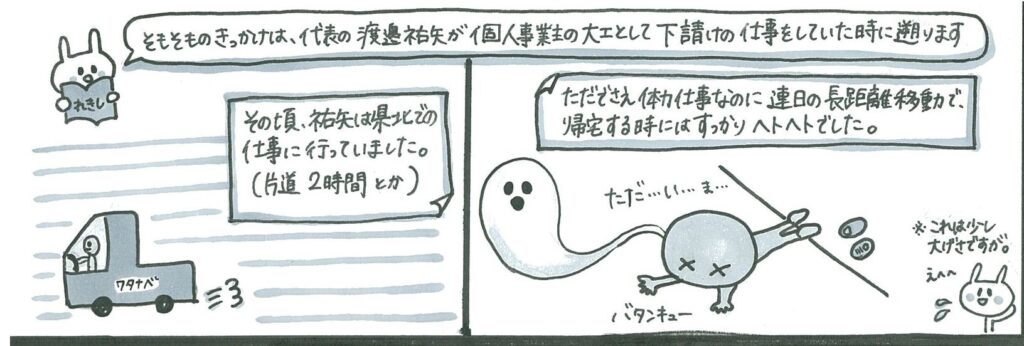 そもそものきっかけは、代表の渡邉祐矢が個人事業主の大工として下請けの仕事をしていた時に遡ります
れきし
その頃、祐矢は県北での
仕事に行っていました。
(片道2時間とか)
ワタナベ
ただでさえ体力仕事なのに連日の長距離移動で、
帰宅する時にはすっかりヘトヘトでした。
ただ…い…ま…
バタンキュー
※これは少し
大げさですが。
えへへ